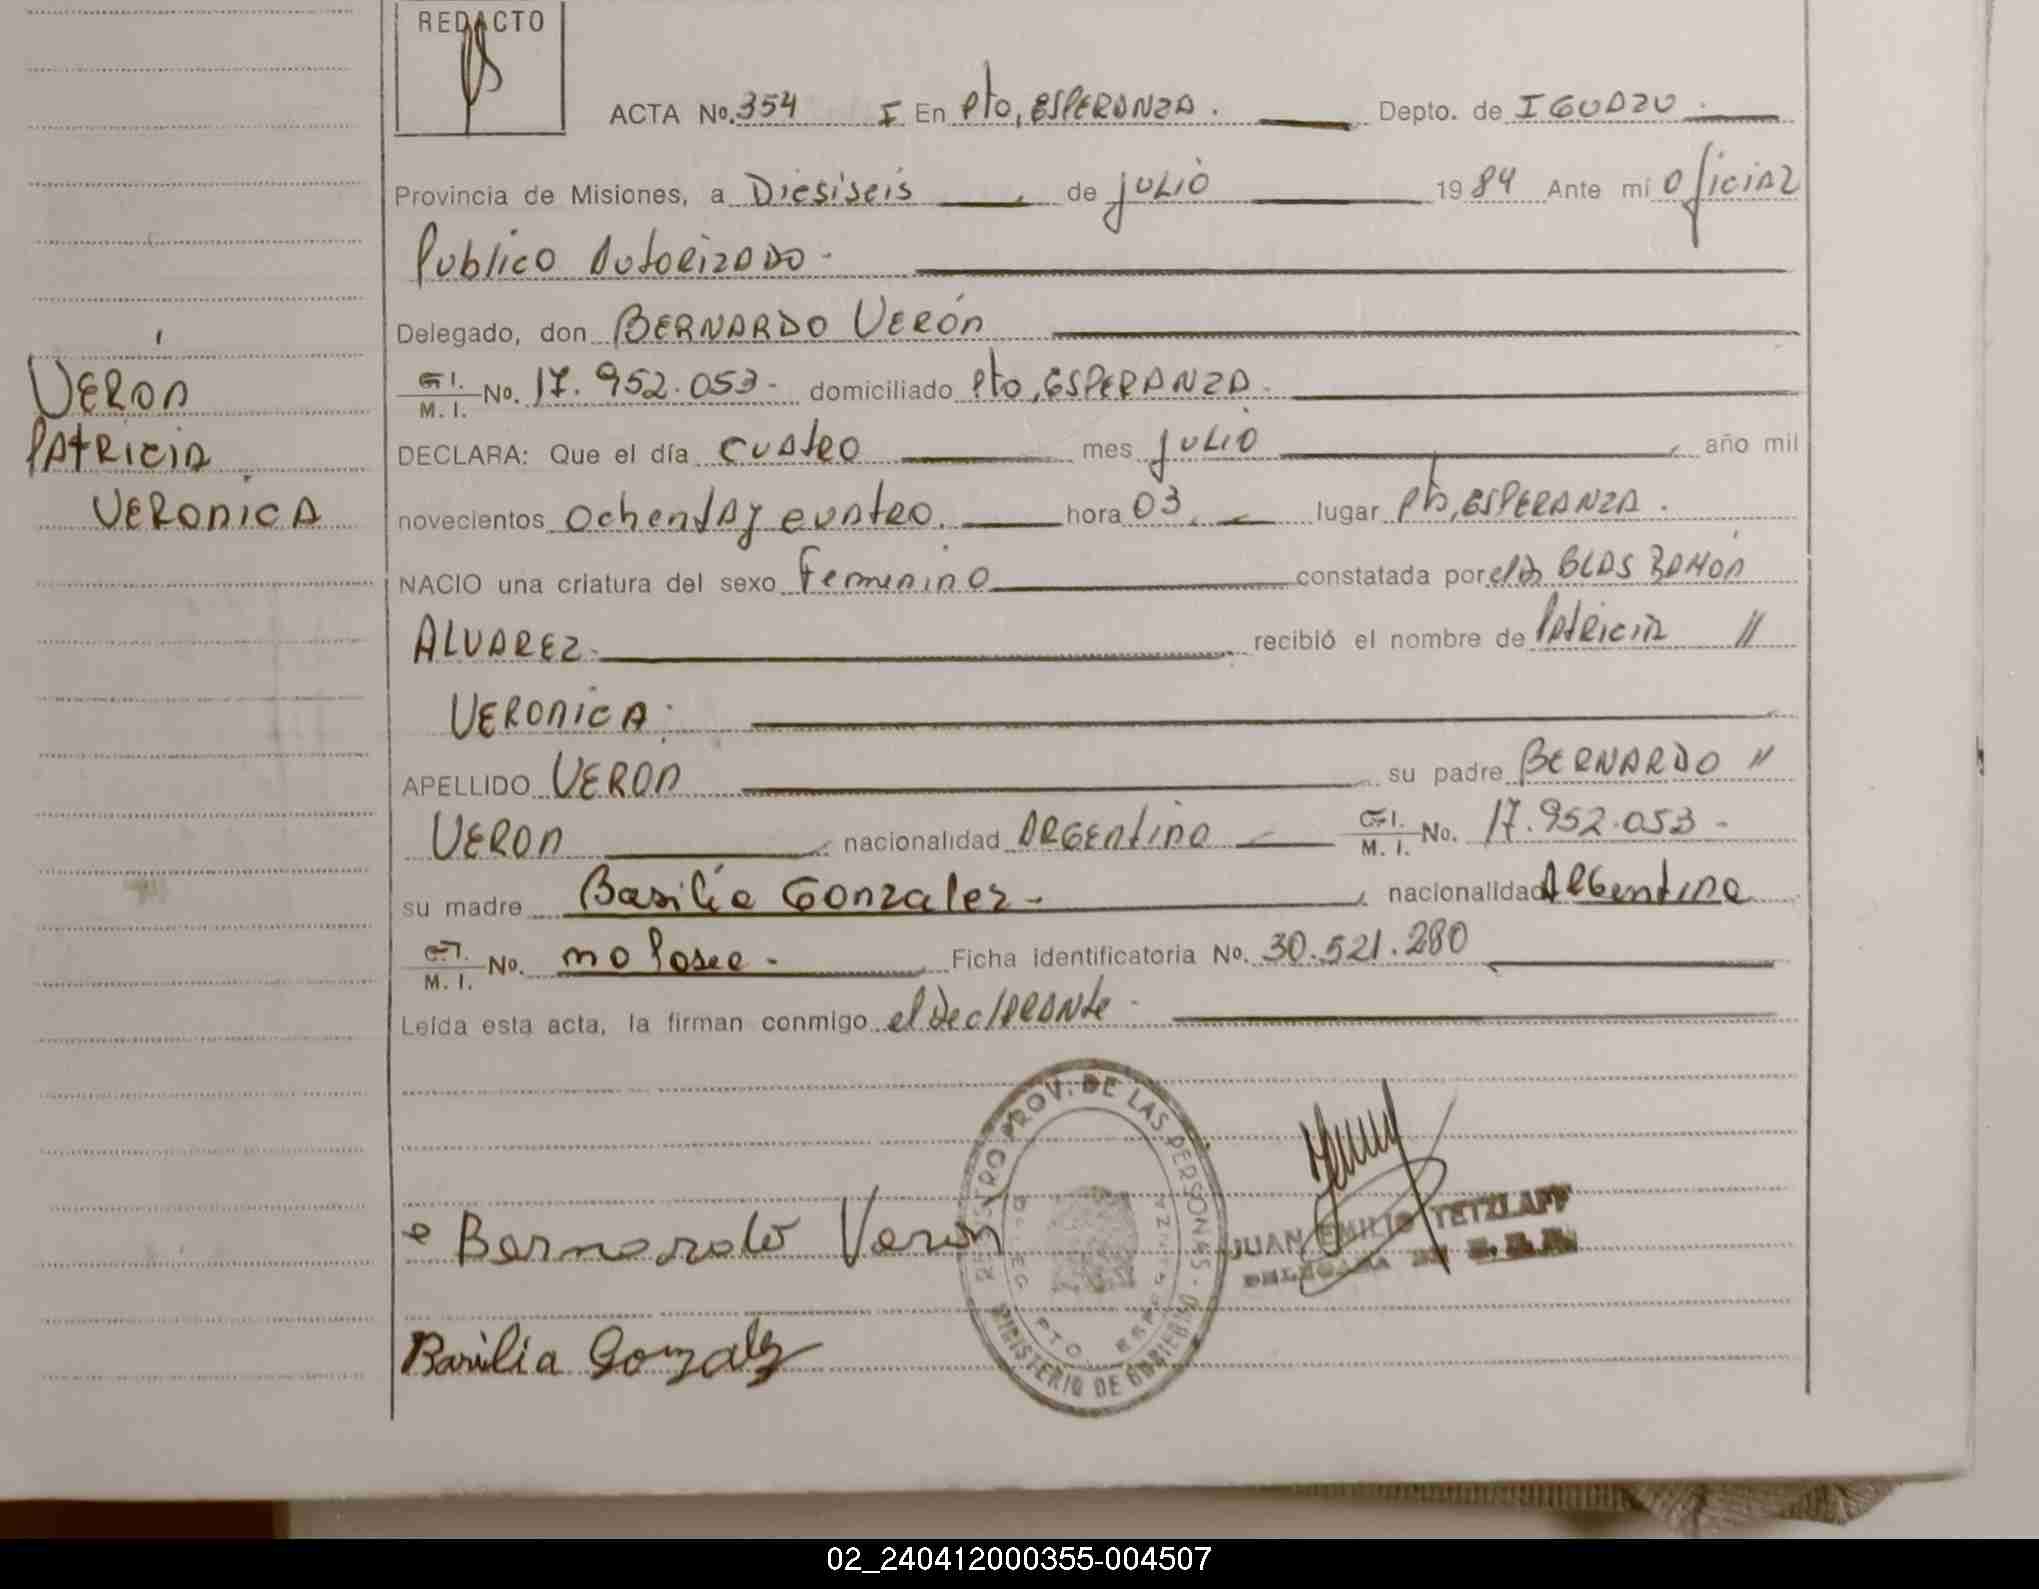 REDACTO
ACTA No. 354 I En Pto, ESPERANZA. Depto. de IGUAZU.
Provincia de Misiones, a Diesiseis de julio 1984 Ante mi Oficial
Publico Autorizado-
Delegado, don BERNARDO VERÓN
C. I. / M. I. No. 17.952.053- domiciliado Pto, ESPERANZA-
VERON
DECLARA: Que el día cuatro mes julio año mil
PATRICIA
novecientos ochenta y cuatro. hora 03 lugar Pto, ESPERANZA.
VERONICA
NACIO una criatura del sexo Femenino constatada por el Dr BLAS RAMÓN
ALVAREZ- recibió el nombre de Patricia //
VERONICA.
APELLIDO VERON su padre BERNARDO //
VERON nacionalidad ARGENTINA C. I. / M. I. No. 17.952.053-
su madre Basilia Gonzalez- nacionalidad Argentina
C. I. / M. I. No. no Posee- Ficha identificatoria No. 30.521.280
Leída esta acta, la firman conmigo el Declarante-
REGISTRO PROV. DE LAS PERSONAS
MINISTERIO DE GOBIERNO
DELEG. PTO ESPERANZA
Bernardo Veron
JUAN EMILIO TETZLAFF
Basilia Gonzalez
02_240412000355-004507